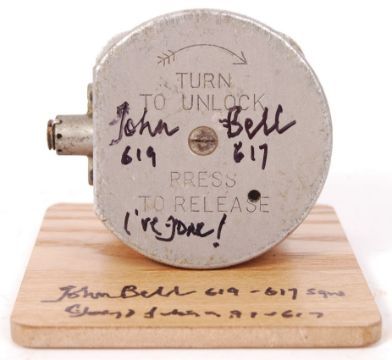 TURN
TO UNLOCK
John Bell
619 617
PRESS
TO RELEASE
I've gone!
John Bell 619 - 617 Sqn